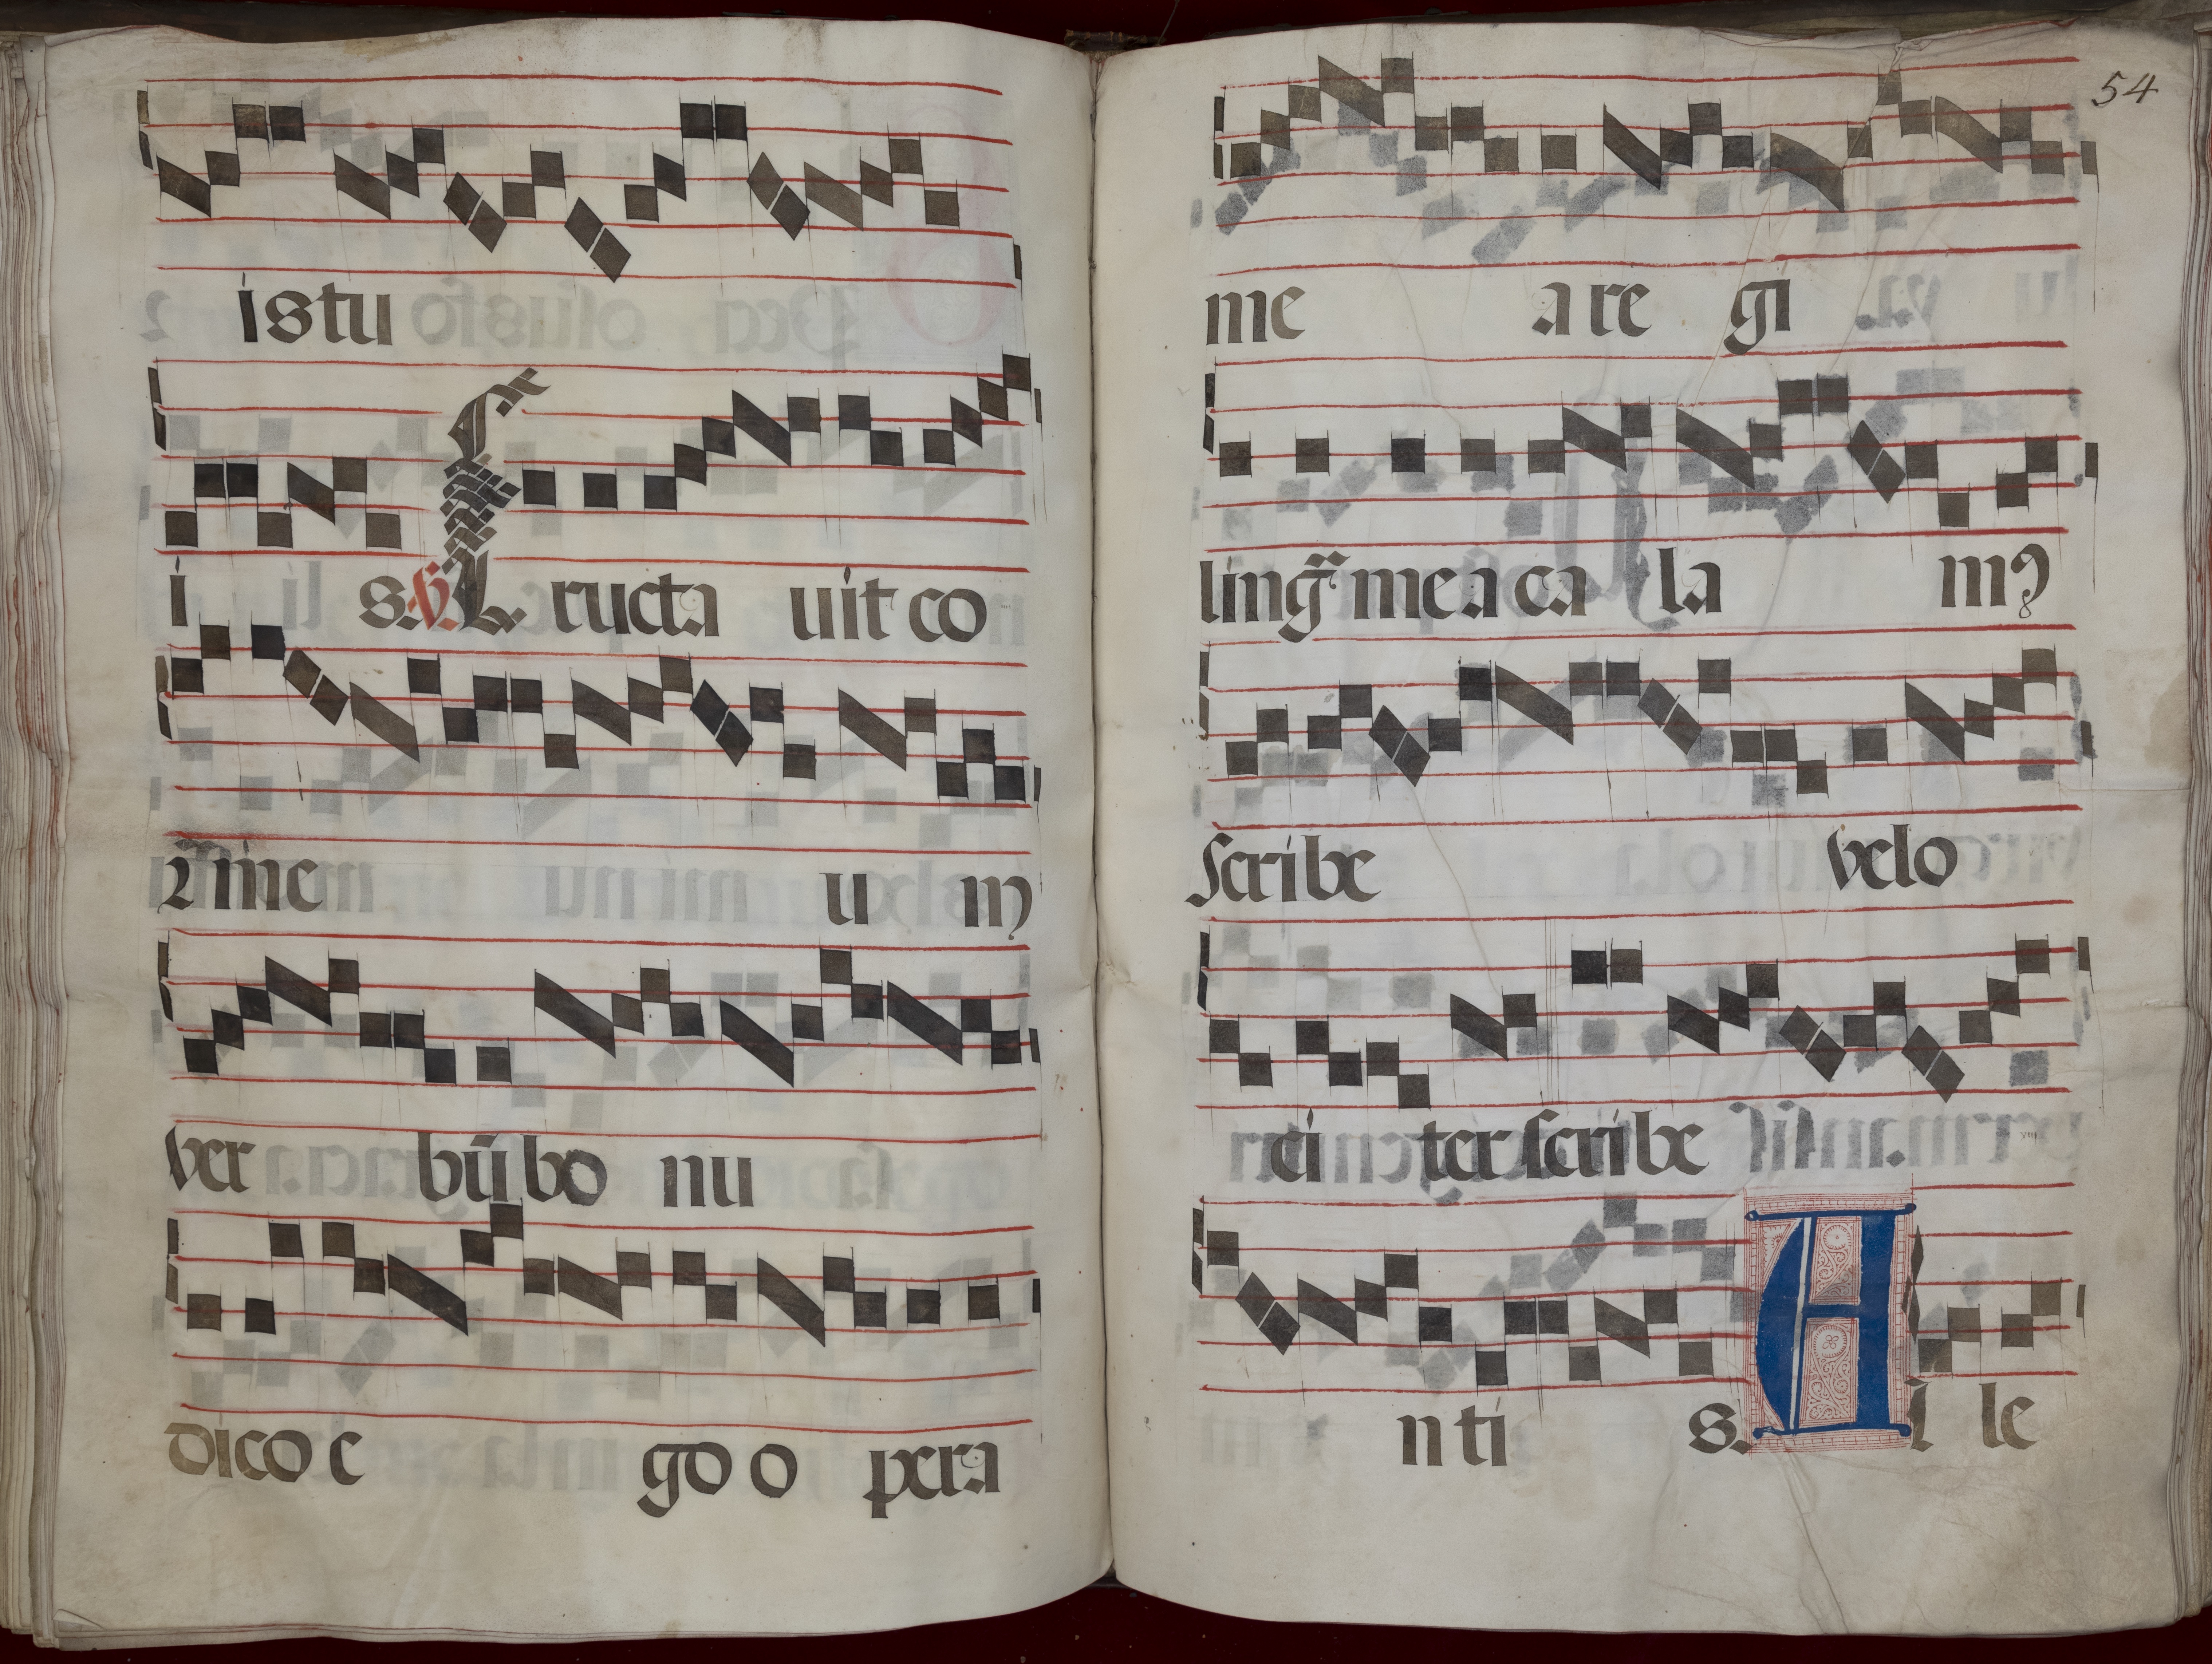 istu
i s. ℣. Eructa uit co
r me u m
ver bū bo nu
dico e go o pera
54
me a re gi
lingᷓ mea ca la mꝰ
scribe velo
ci ter scribe
n ti s. Al le